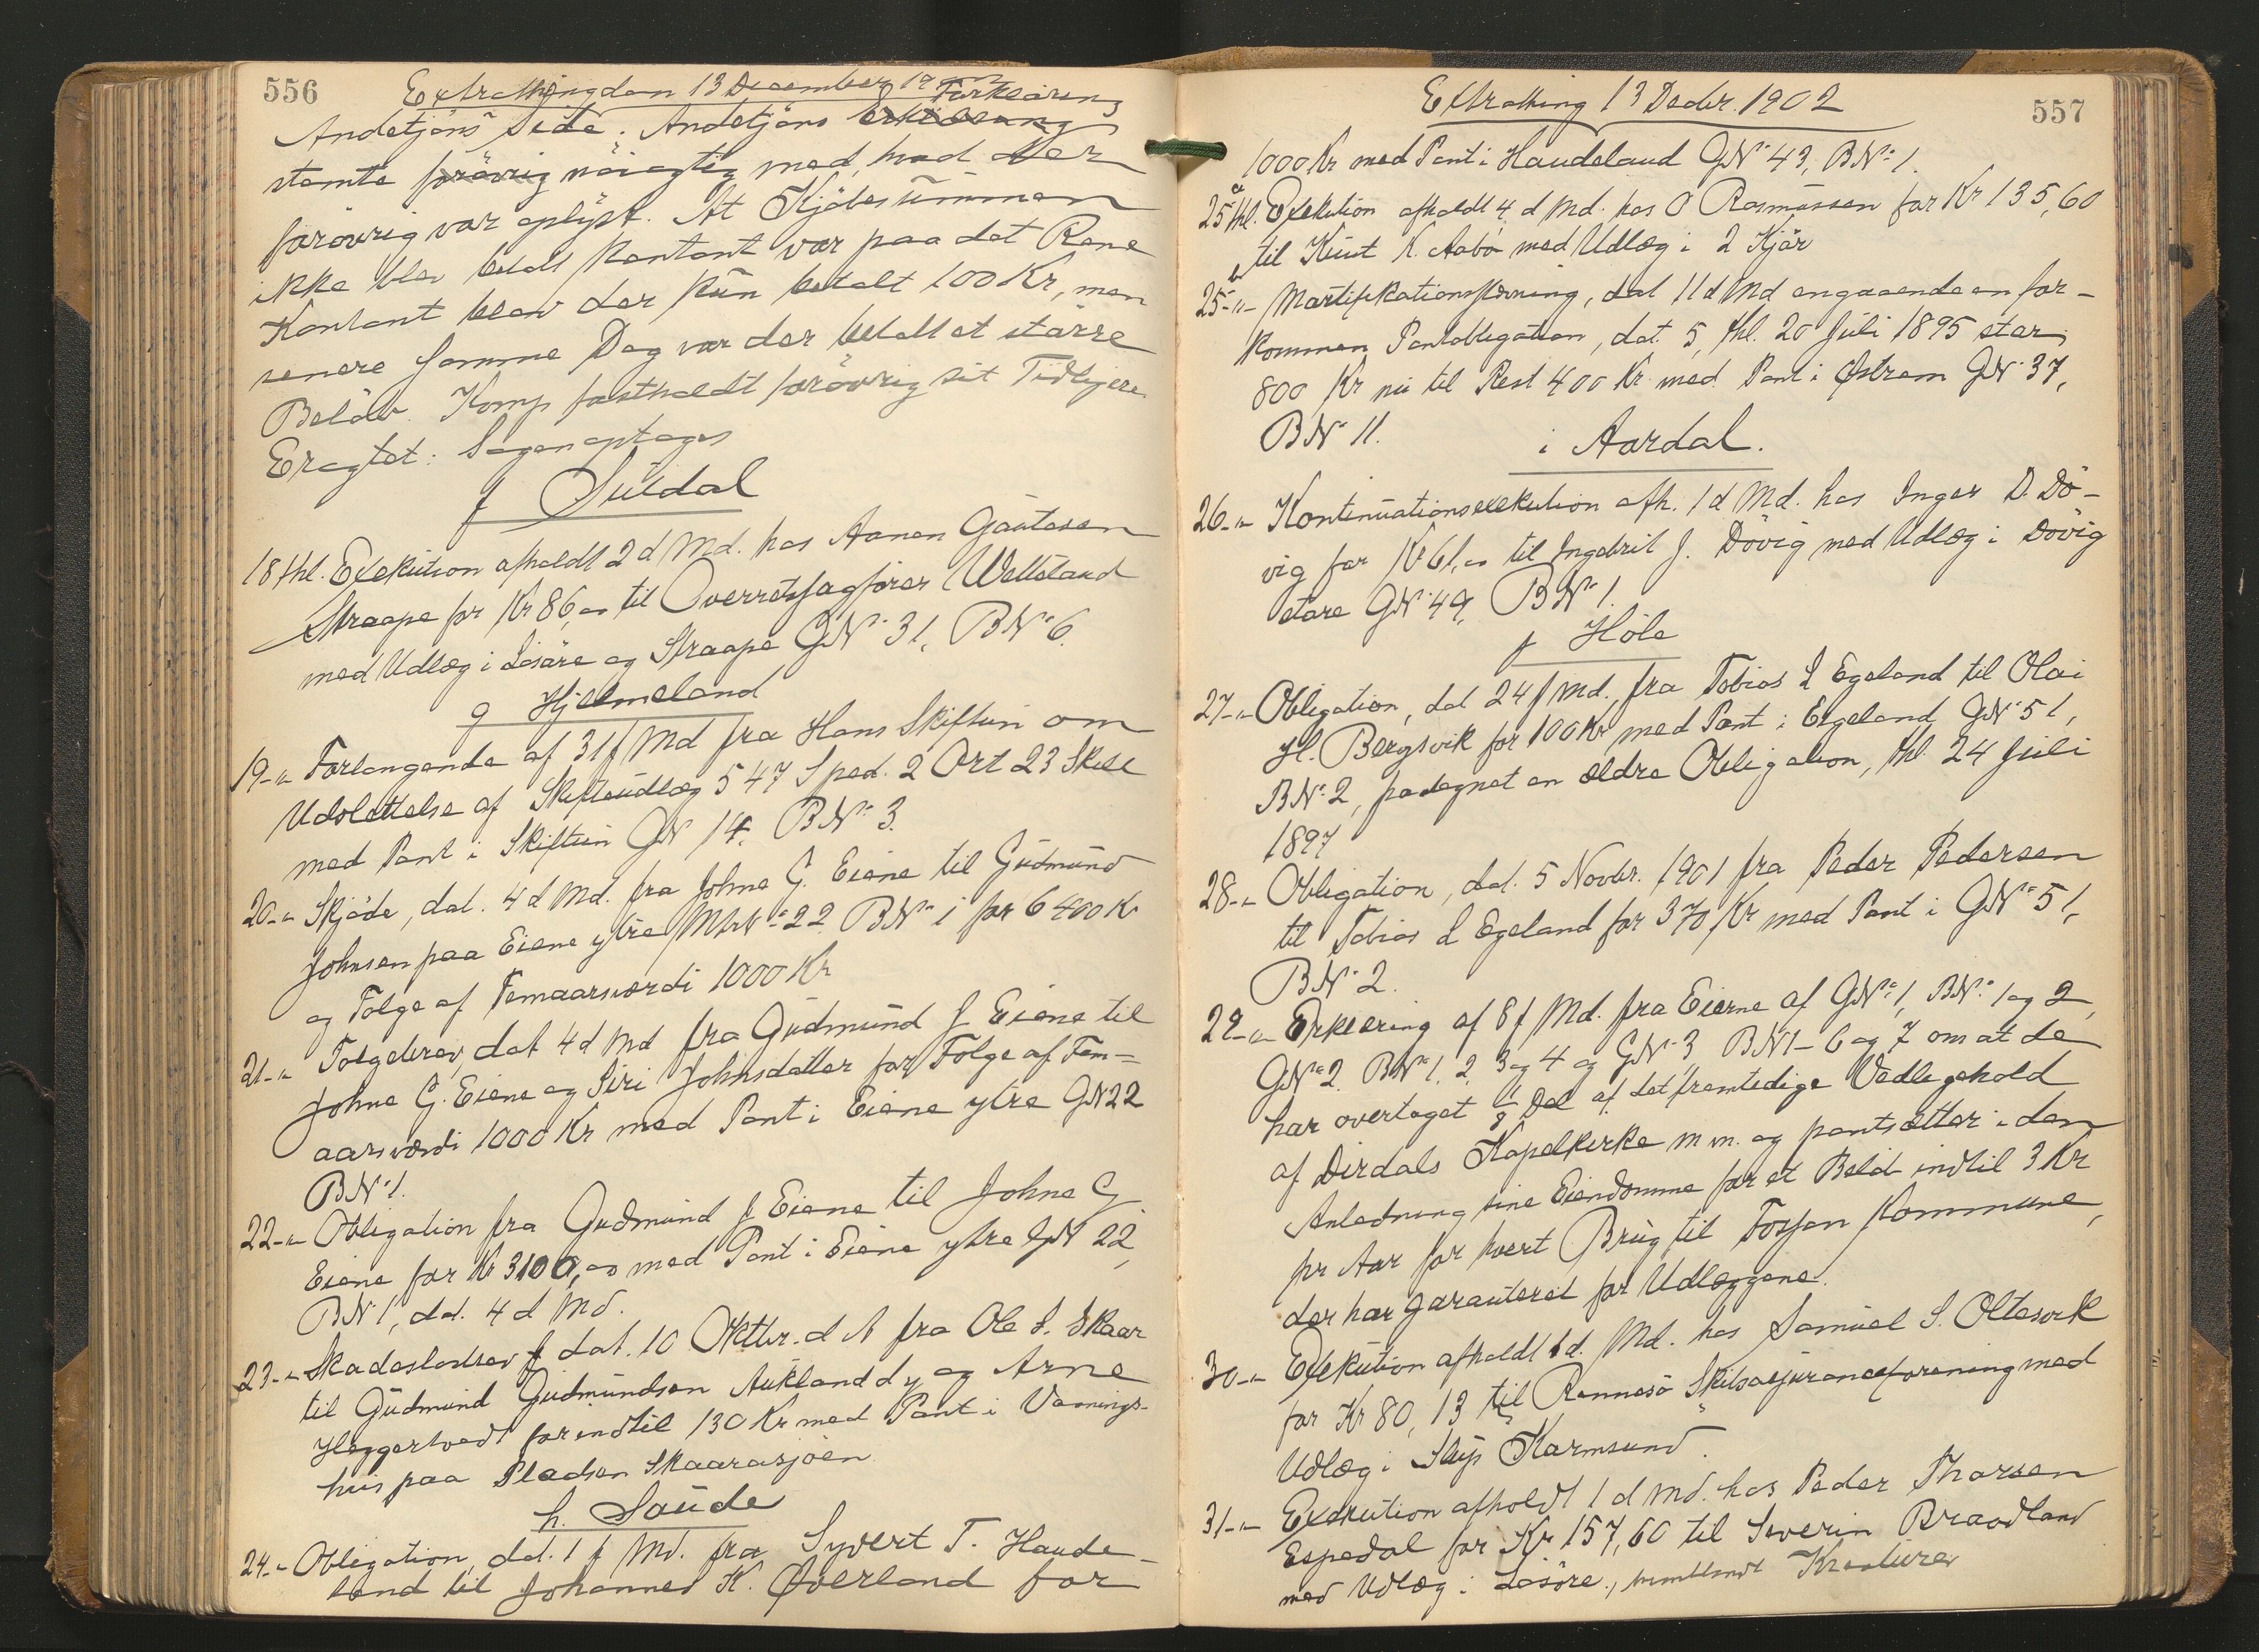 556
Extrathing den 13 December 19
Forklaring
Andetjöns Side. Andetjöns erklæring
stemte forövrig nöiagtig med, hvad der
forövrig var oplyst. At Kjöbesummen
ikke blev betalt kontant var paa det Rene
Kontant blev der kun betalt 100 Kr, men
senere samme Dag var der betalt et större
Belöb. Komp fastholdt forövrig sit Tidligere.
Eragtet: Sagen optages
f Suldal
18 thl. Exekution afholdt 2 d Md. hos Aanen Gautesen
Straape for Kr 86,00 til Overretssagförer Wetteland
med Udlæg i Lösöre og Straape GN: 31, BN: 6.
g Hjelmeland
19-"- Forlangende af 31 f Md fra Hans Skiftun om
Udslettelse af Skifteudlæg 547 Sped. 2 Ort 23 Skill
med Pant i Skiftun GN 14, BN: 3.
20-"- Skjöde, dat. 4 d Md. fra Johne G. Eiene til Gudmund
Johnsen paa Eiene ytre MtrN: 22 BN: 1 for 6400 Kr
og Folge af Femaarsværdi 1000 Kr
21-"- Folgebrev, dat 4 d Md fra Gudmund J Eiene til
Johne G. Eiene og Siri Johnsdatter for Folge af Fem-
aarsværdi 1000 Kr med Pant i Eiene ytre GN 22
BN: 1.
22-"- Obligation fra Gudmund J Eiene til Johne G
Eiene for Kr 3100,00 med Pant i Eiene ytre GN 22,
BN: 1, dat. 4 d Md.
23-"- Skadeslösbrev dat. 10 Oktbr. d A fra Ole S. Skaar
til Gudmund Gudmundsen Aukland d y og Arne
Heggertvedt for indtil 130 Kr med Pant i Vaanings-
hus paa Pladsen Skaarasjöen
h. Saude
24-"- Obligation, dat. 1 f Md. fra Syvert T. Haude-
land til Johannes K. Øverland for
Extrathing 13 Decbr. 1902
557
1000 Kr med Pant i Haudeland GN: 43, BN: 1.
25 a thl. Exekution afholdt 4 d Md. hos O Rasmussen for Kr 135,60
til Knut K. Aabö med Udlæg i 2 Kjör
25 b -"- Mortifikationsstævning, dat 11 d Md angaaende en for-
kommen Pantobligation, dat. 5, thl. 20 Juli 1895 stor
800 Kr nu til Rest 400 Kr med Pant i Østrem GN: 37,
BN: 11.
i Aardal.
26-"- Kontinuationsexekution afh. 1 d Md. hos Inger D. Dö-
vig for Kr 61,00 til Ingebrit J. Dövig med Udlæg i Dövig
store GN: 49, BN: 1.
j Höle
27-"- Obligation, dat 24 f Md., fra Tobias L Egeland til Olai
H. Bergsvik for 100 Kr med Pant i Eigeland GN: 51,
BN: 2, paategnet en ældre Obligation, thl 24 Juli
1897
28-"- Obligation, dat. 5 Novbr. 1901 fra Peder Pedersen
til Tobias L Egeland for 370 Kr med Pant i GN: 51,
BN: 2.
29-"- Erklæring af 8 f Md. fra Eierne af GN: 1, BN: 1 og 2,
GN: 2, BN: 1, 2, 3 og 4 og GN: 3, BN 1-6 og 7 om at de
har overtaget 1/8 Del af det fremtidige Vedligehold
af Dirdals Kapelkirke m m. og pantsætter i den
Anledning sine Eiendomme for et Belöb indtil 3 Kr
pr Aar for hvert Brug til Fossan Kommune,
der har garanteret for Udlæggene.
30-"- Exekution afholdt 1 d. Md. hos Samuel S. Oltesvik
for Kr 80,13 til Rennesö Skibsassuranceforening med
Udlæg i Skip Karmsund.
31-"- Exekution afholdt 1 d Md. hos Peder Tharsen
Espedal for Kr 157,60 til Severin Braadland
med Udlæg i Lösöre, hvoriblandt Kreaturer